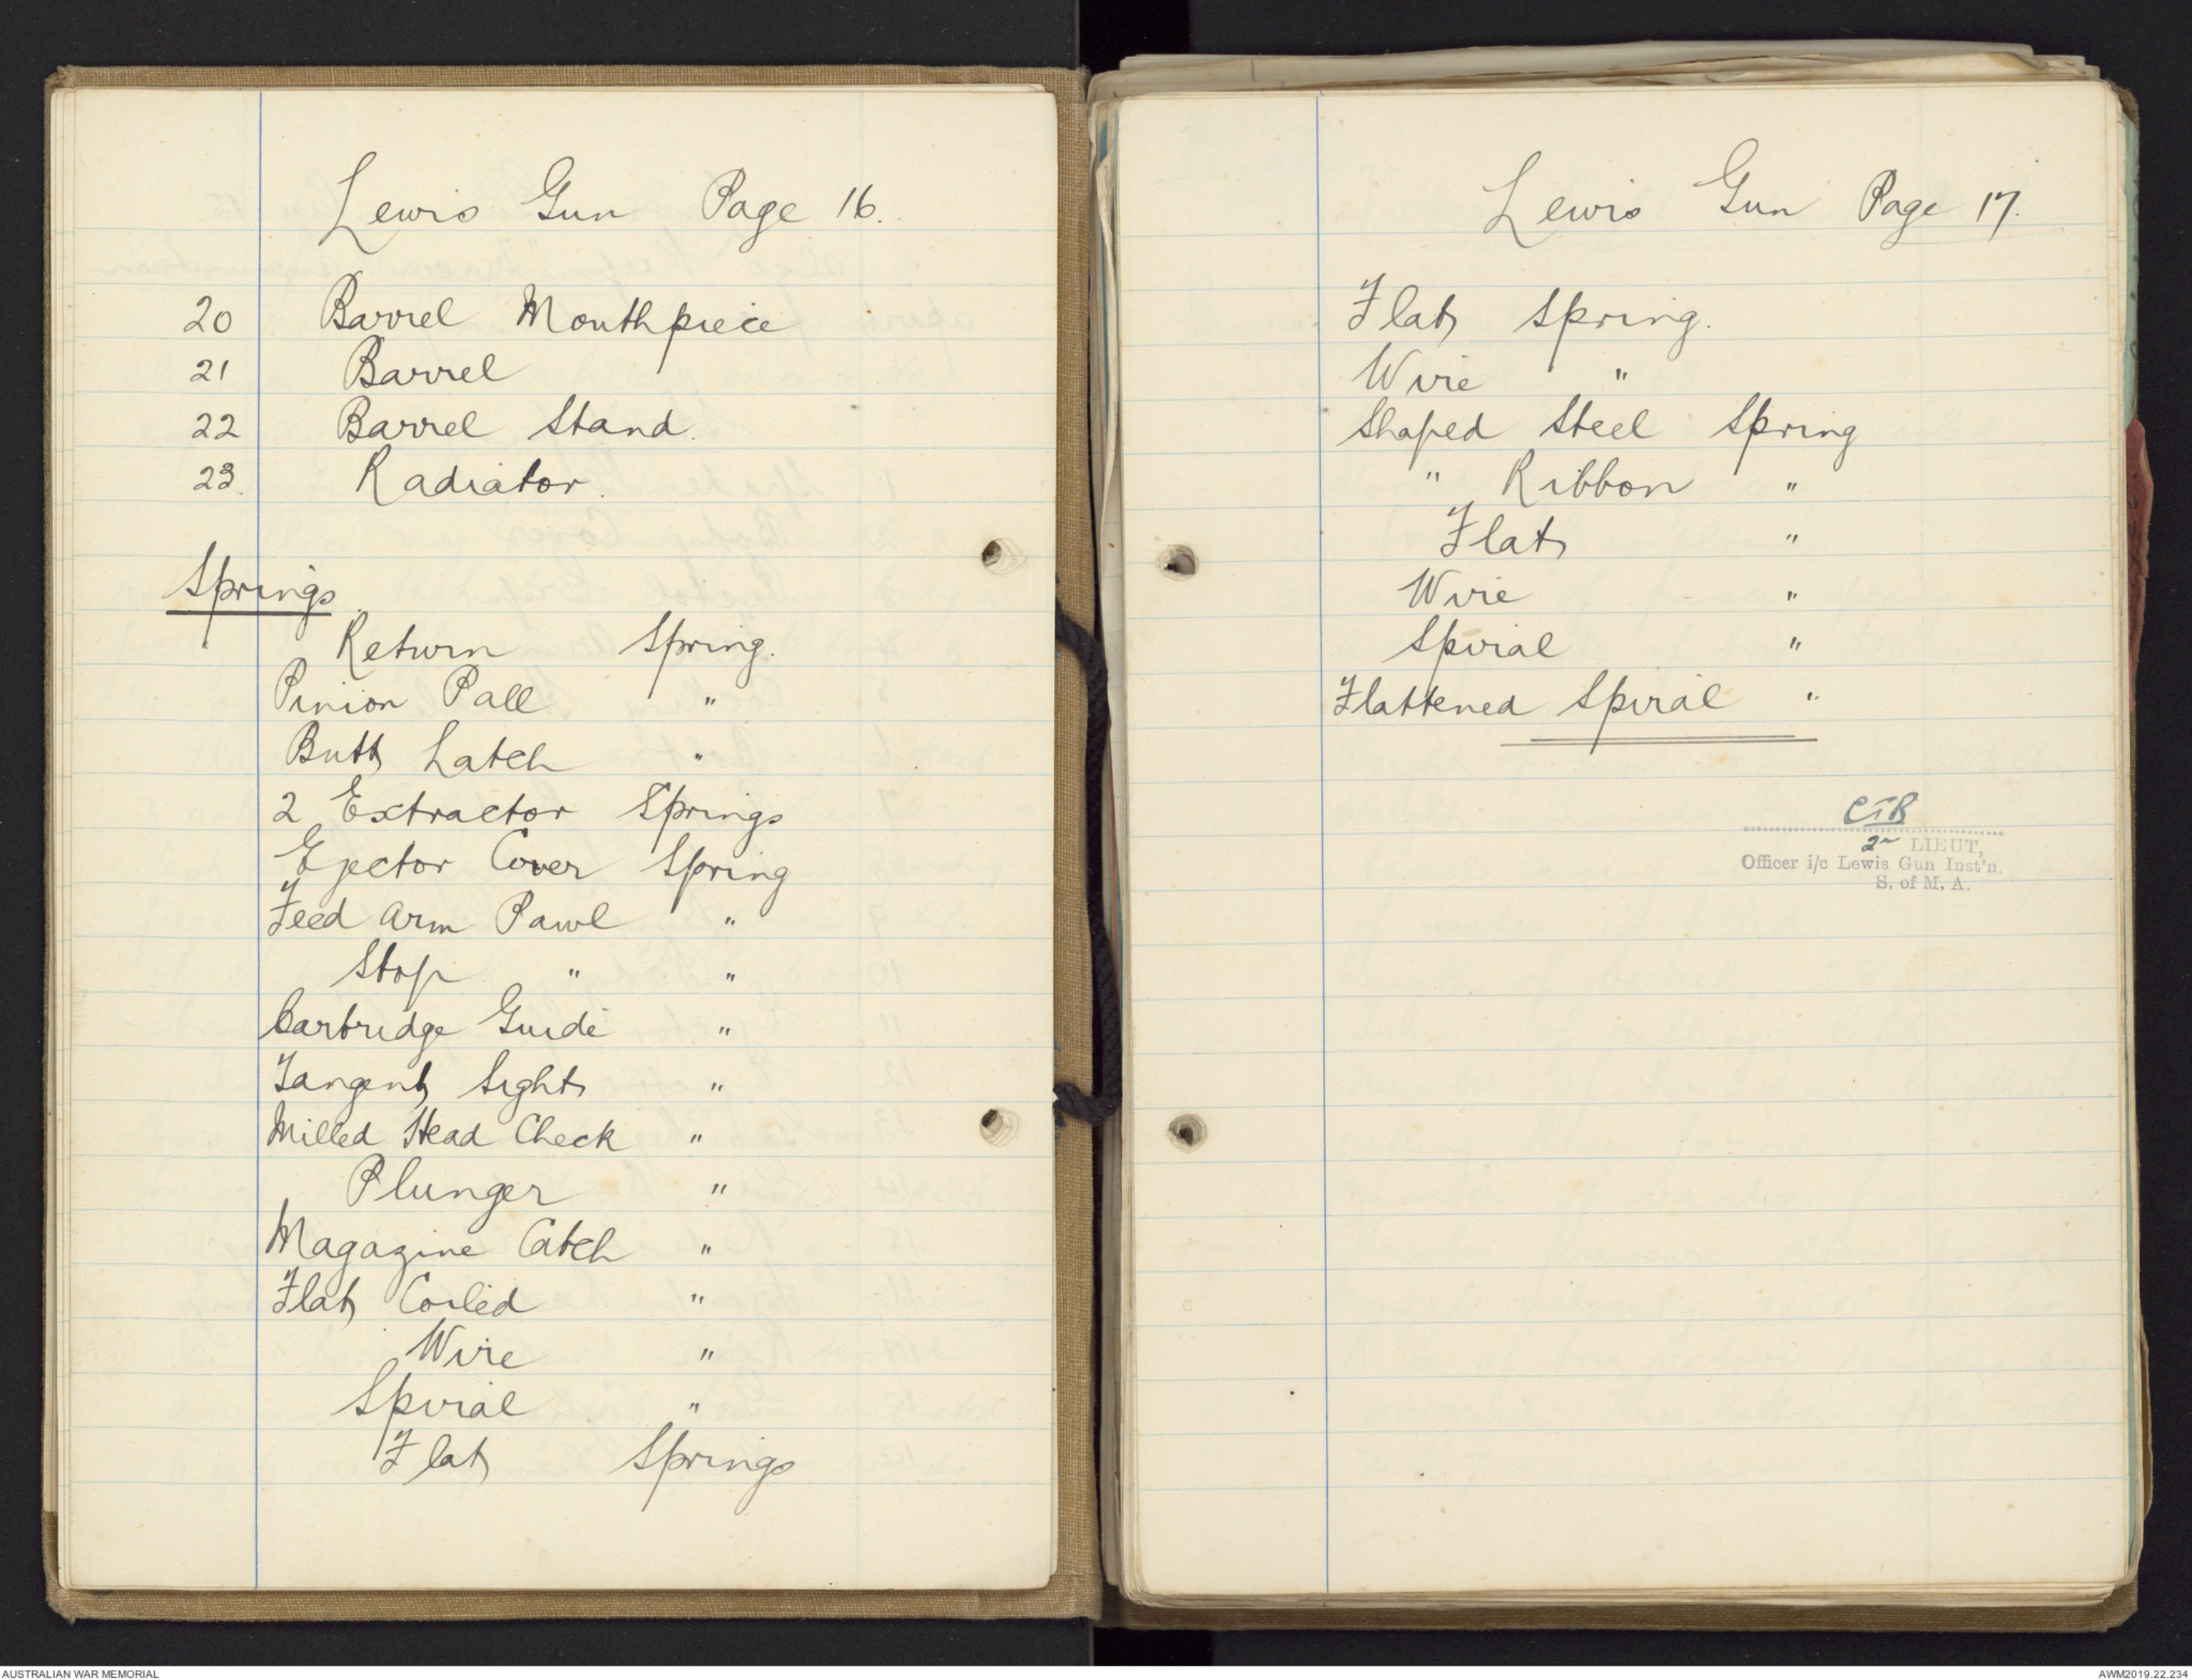 Lewis Gun Page 16.
20 Barrel Mouthpiece
21 Barrel
22 Barrel Stand.
23. Radiator.
Springs.
Return Spring.
Pinion Pall "
Butt Latch "
2 Extractor Springs
Ejector Cover Spring
Feed Arm Pawl "
Stop " "
Cartridge Guide "
Tangent Sight "
Milled Head Check "
Plunger "
Magazine Catch "
Flat Coiled "
Wire "
Spiral "
Flat Springs
Lewis Gun Page 17.
Flat Spring.
Wire "
Shaped Steel Spring
" Ribbon "
Flat "
Wire "
Spiral "
Flattened Spiral "
CTB
2n LIEUT,
Officer i/c Lewis Gun Inst'n.
S. of M. A.
AUSTRALIAN WAR MEMORIAL
AWM2019.22.234